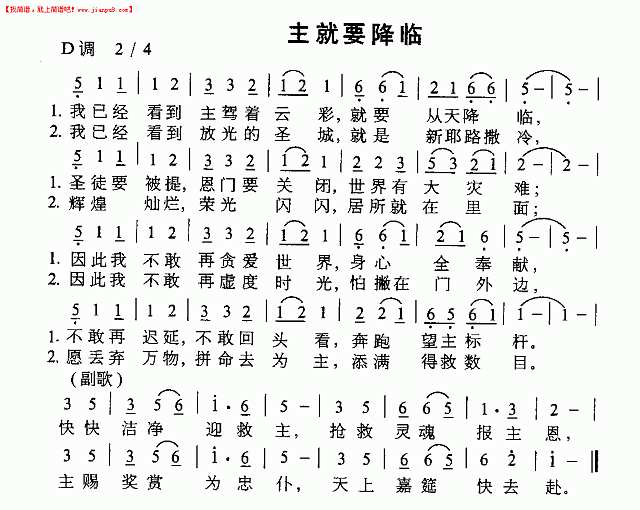 【找简谱,就上简谱吧! www.jianpu8.com】
主就要降临
D调 2/4
5 1 1 | 1 2 | 3 3 2 | 1 2 1 | 6 6 1 | 2 1 6 6 | 5 – | 5 – |
1. 我已经 看到 主驾着 云 彩,就要 从天降 临,
2. 我已经 看到 放光的 圣 城,就是 新耶路撒 冷,
5 1 1 | 1 2 | 3 3 2 | 1 2 1 | 2 2 3 | 5 3 2 1 | 2 – | 2 – |
1. 圣徒要 被提,恩门要 关 闭,世界有 大 灾 难;
2. 辉煌 灿烂,荣光 闪 闪,居所就 在 里 面;
5 1 1 | 1 2 | 3 3 2 | 1 2 1 | 6 6 1 | 2 1 6 | 5 – | 5 – |
1. 因此我 不敢 再贪爱 世 界,身心 全 奉 献,
2. 因此我 不敢 再虚度 时 光,怕撇在 门 外 边,
5 1 1 | 1 2 | 3 3 2 | 1 2 1 | 2 2 3 | 6 5 6 5 | 1 – | 1 – |
1. 不敢再 迟延,不敢回 头 看,奔跑 望主标 杆。
2. 愿丢弃 万物,拼命去 为 主,添满 得救数 目。
(副歌)
3 5 | 3 5 6 | 1·6 | 5 – | 3 5 | 6 6 5 | 1·3 | 2 – |
快快 洁净 迎救 主,抢救 灵魂 报主 恩,
3 5 | 3 5 6 | 1·6 | 5 – | 3 5 | 6 6 5 | 6 2 | 1 – ‖
主赐 奖赏 为忠 仆,天上 嘉筵 快去 赴。